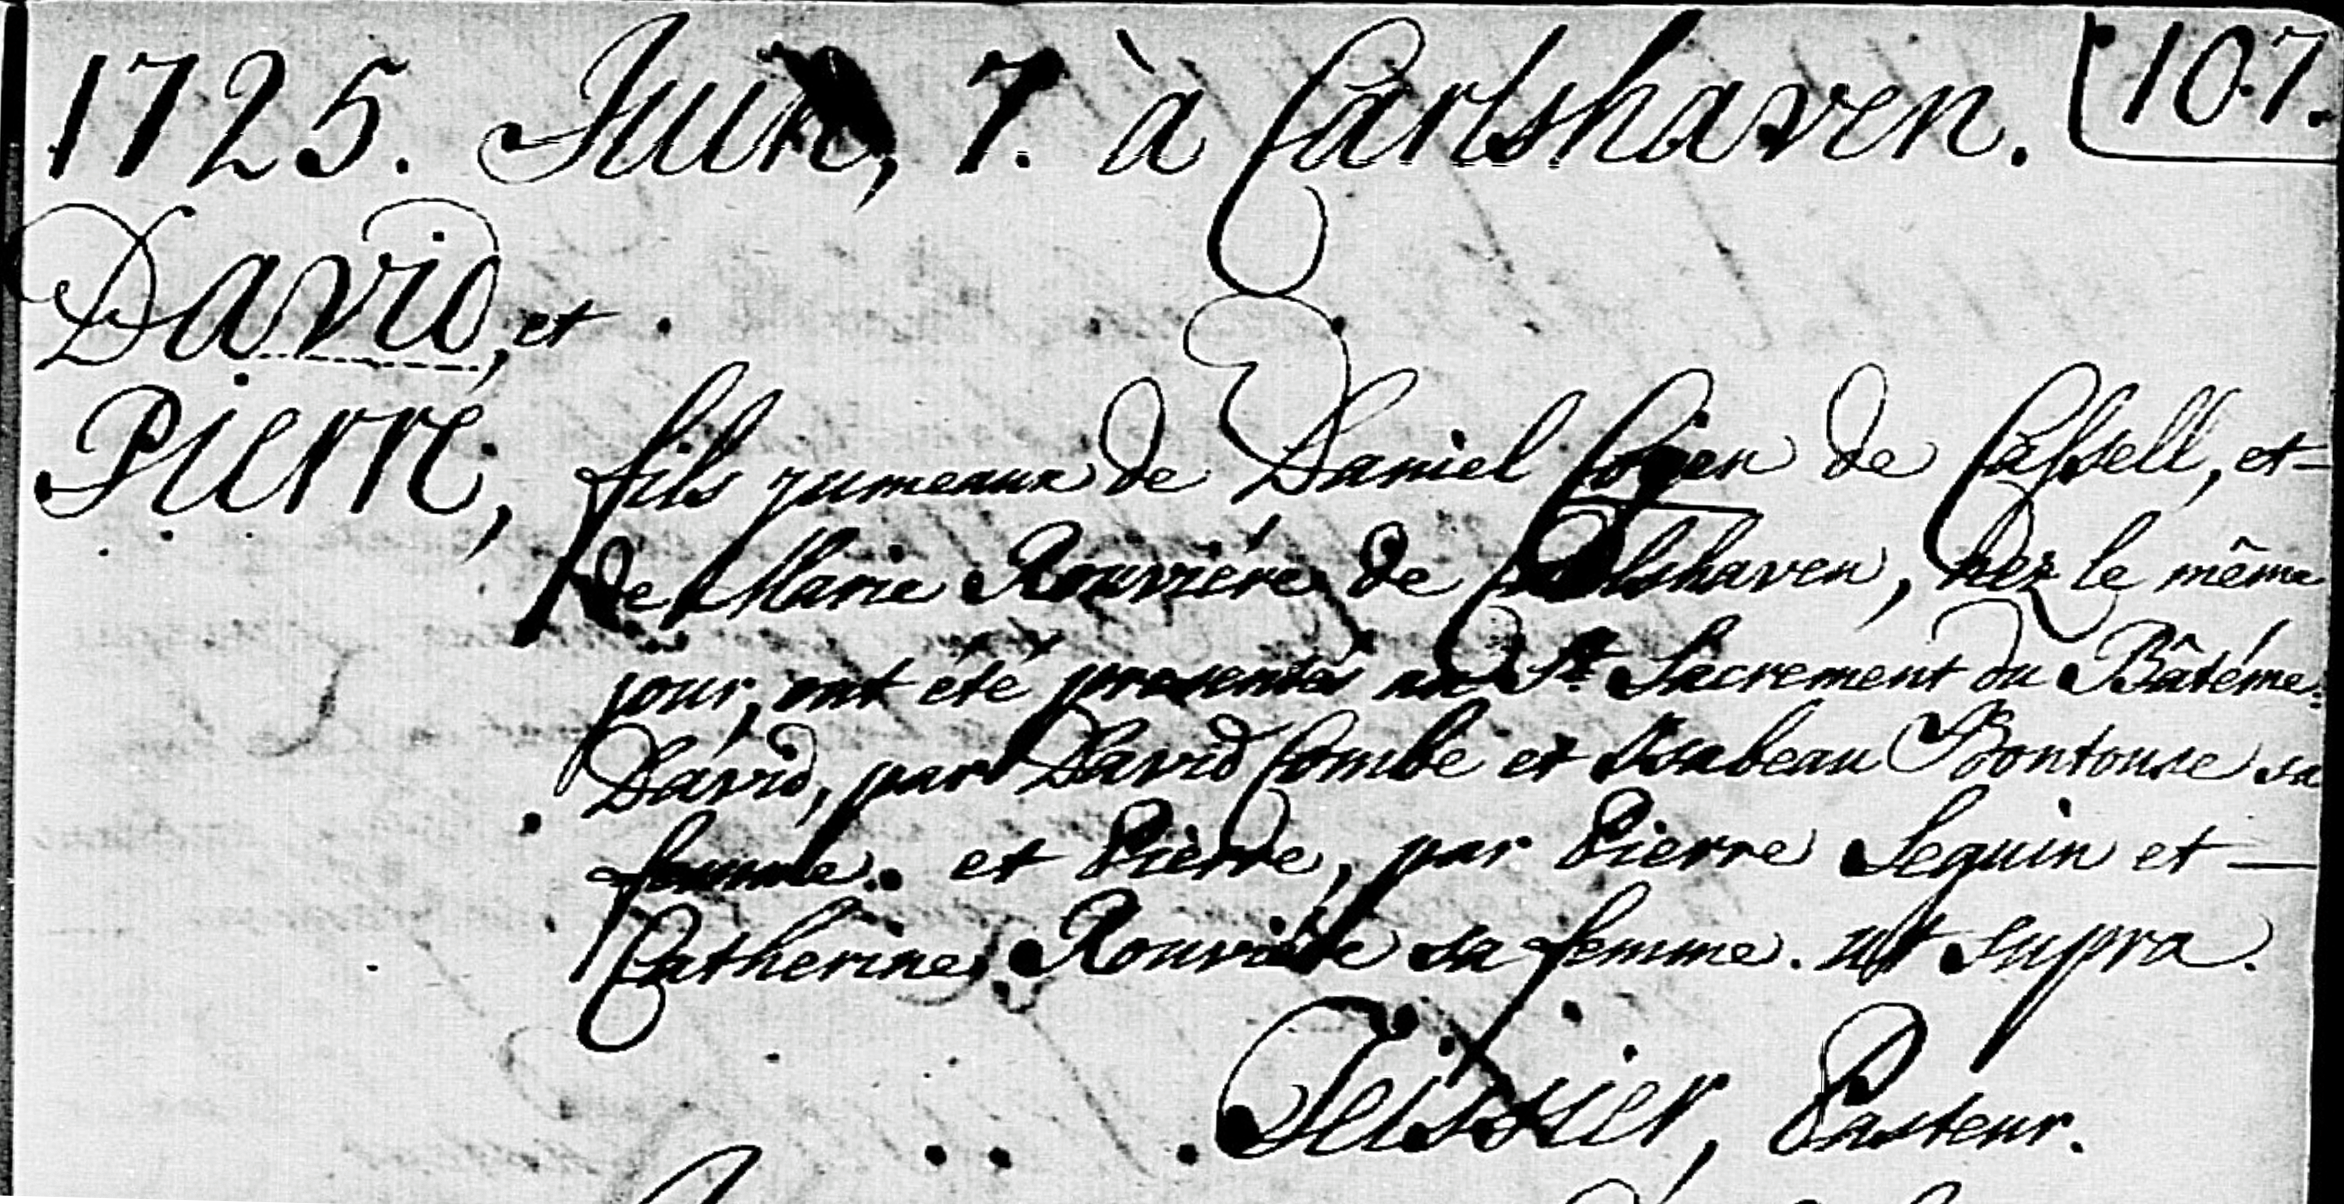 1725. Juin, 7. à Carlshaven. 107.
David, et
Pierre,
fils jumeaux de Daniel Cojen de Cassell, et
de Marie Rouviére de Carlshaven, nez le même
jour, ont été presentés au St. Sacrement du Bâtéme:
David, par David Combe et Isabeau Bontouse sa
femme. et Pièrre, par Pierre Seguin et
Catherine Rouviére sa femme. ut supra.
Teissier, Pasteur.